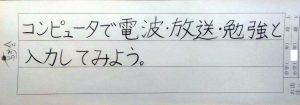 コンピュータで電波・放送・勉強と
入力してみよう。